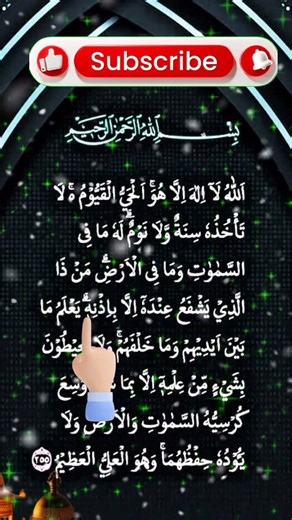 Subscribe
بِسْمِ اللهِ الرَّحْمٰنِ الرَّحِيْمِ
اَللهُ لَآ اِلٰهَ اِلَّا هُوَۚ اَلْحَيُّ الْقَيُّوْمُ ۚ لَا
تَأْخُذُهٗ سِنَةٌ وَّلَا نَوْمٌؕ لَهٗ مَا فِى
السَّمٰوٰتِ وَمَا فِى الْاَرْضِؕ مَنْ ذَا
الَّذِيْ يَشْفَعُ عِنْدَهٗٓ اِلَّا بِاِذْنِهٖؕ يَعْلَمُ مَا
بَيْنَ اَيْدِيْهِمْ وَمَا خَلْفَهُمْۚ
بِشَيْءٍ مِّنْ عِلْمِهٖٓ اِلَّا بِمَا
كُرْسِيُّهُ السَّمٰوٰتِ وَالْاَرْضَۚ وَلَا
يَـُٔوْدُهٗ حِفْظُهُمَاۚ وَهُوَ الْعَلِيُّ الْعَظِيْمُ ۲۵۵